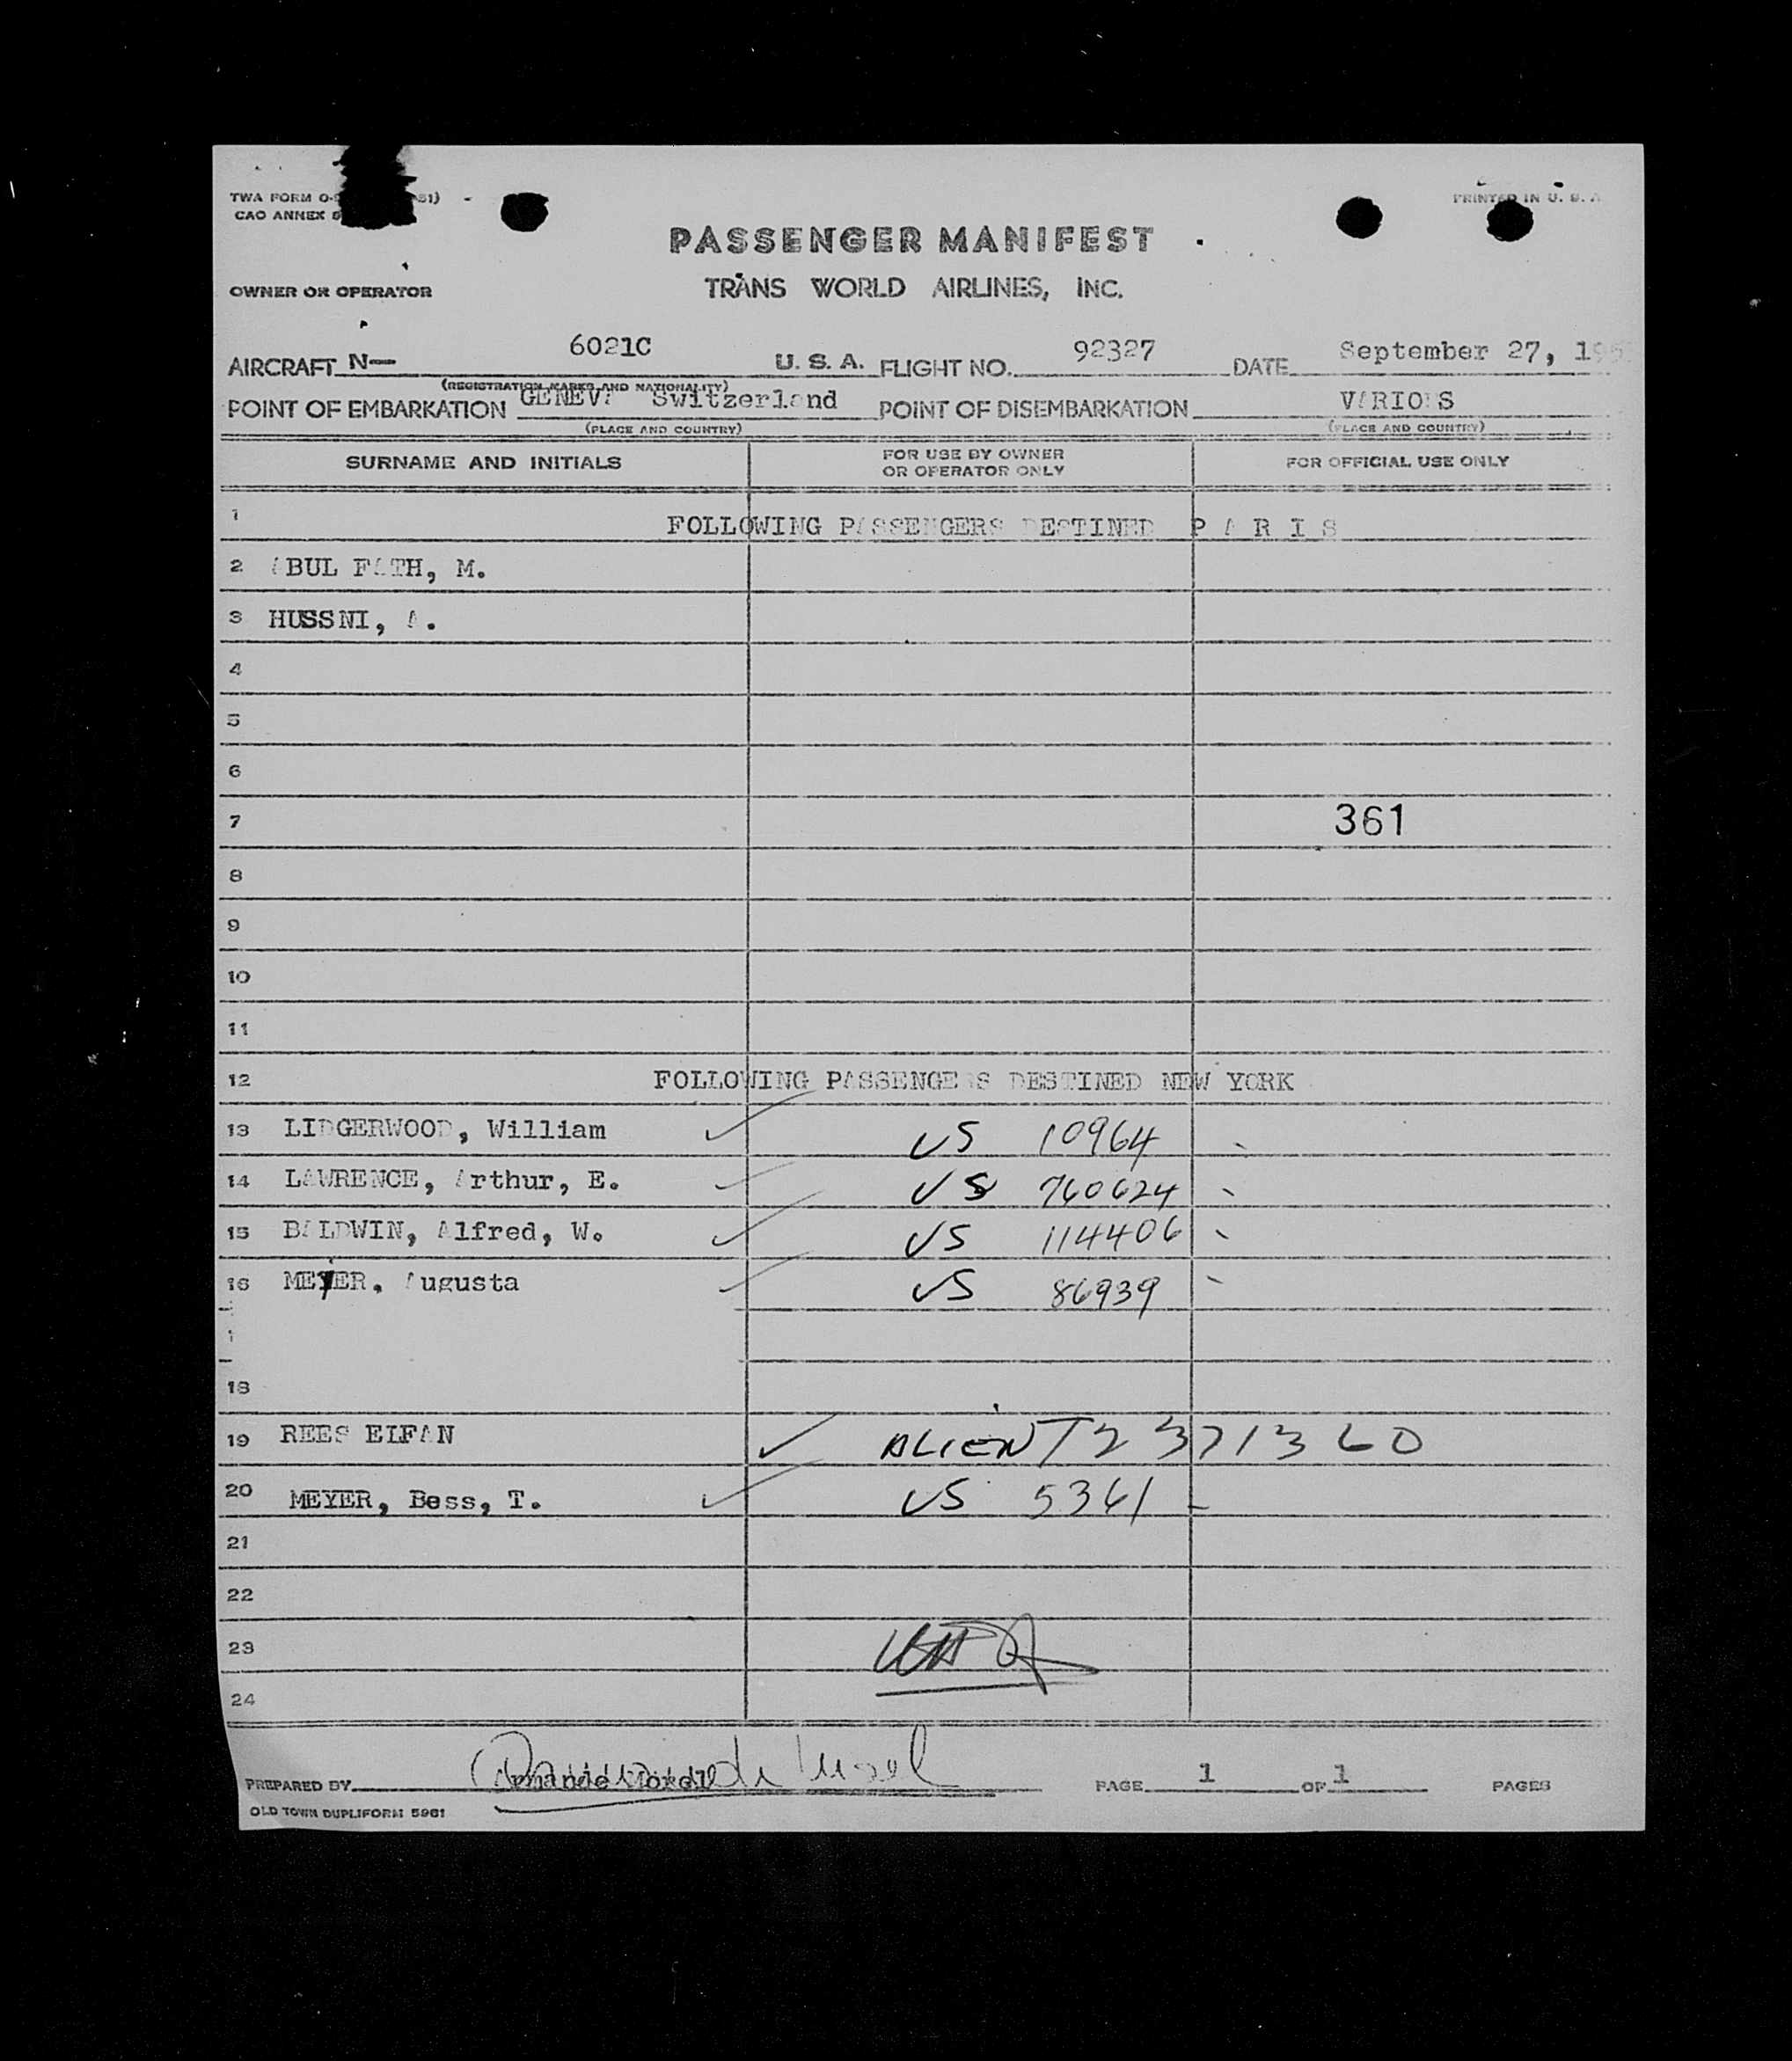 TWA FORM O- 51)
CAO ANNEX
PRINTED IN U. S. A.
PASSENGER MANIFEST
OWNER OR OPERATOR
TRANS WORLD AIRLINES, INC.
AIRCRAFT N— 6021C U. S. A. FLIGHT NO. 92327 DATE September 27, 195
(REGISTRATION MARKS AND NATIONALITY)
POINT OF EMBARKATION GENEVA Switzerland POINT OF DISEMBARKATION VARIOUS
(PLACE AND COUNTRY) (PLACE AND COUNTRY)
SURNAME AND INITIALS FOR USE BY OWNER OR OPERATOR ONLY FOR OFFICIAL USE ONLY
1 FOLLOWING PASSENGERS DESTINED P A R I S
2 ABUL FATH, M.
3 HUSSNI, A.
4
5
6
7 361
8
9
10
11
12 FOLLOWING PASSENGERS DESTINED NEW YORK
13 LIDGERWOOD, William ✓ US 10964 -
14 LAWRENCE, Arthur, E. ✓ US 760624 -
15 BALDWIN, Alfred, W. ✓ US 114406 -
16 MEYER, Augusta ✓ US 86939 -
18
19 REES EIFAN ✓ ALIEN T2371360
20 MEYER, Bess, T. ✓ US 5361 -
21
22
23
24
PREPARED BY PAGE 1 OF 1 PAGES
OLD TOWN DUPLIFORM 5961